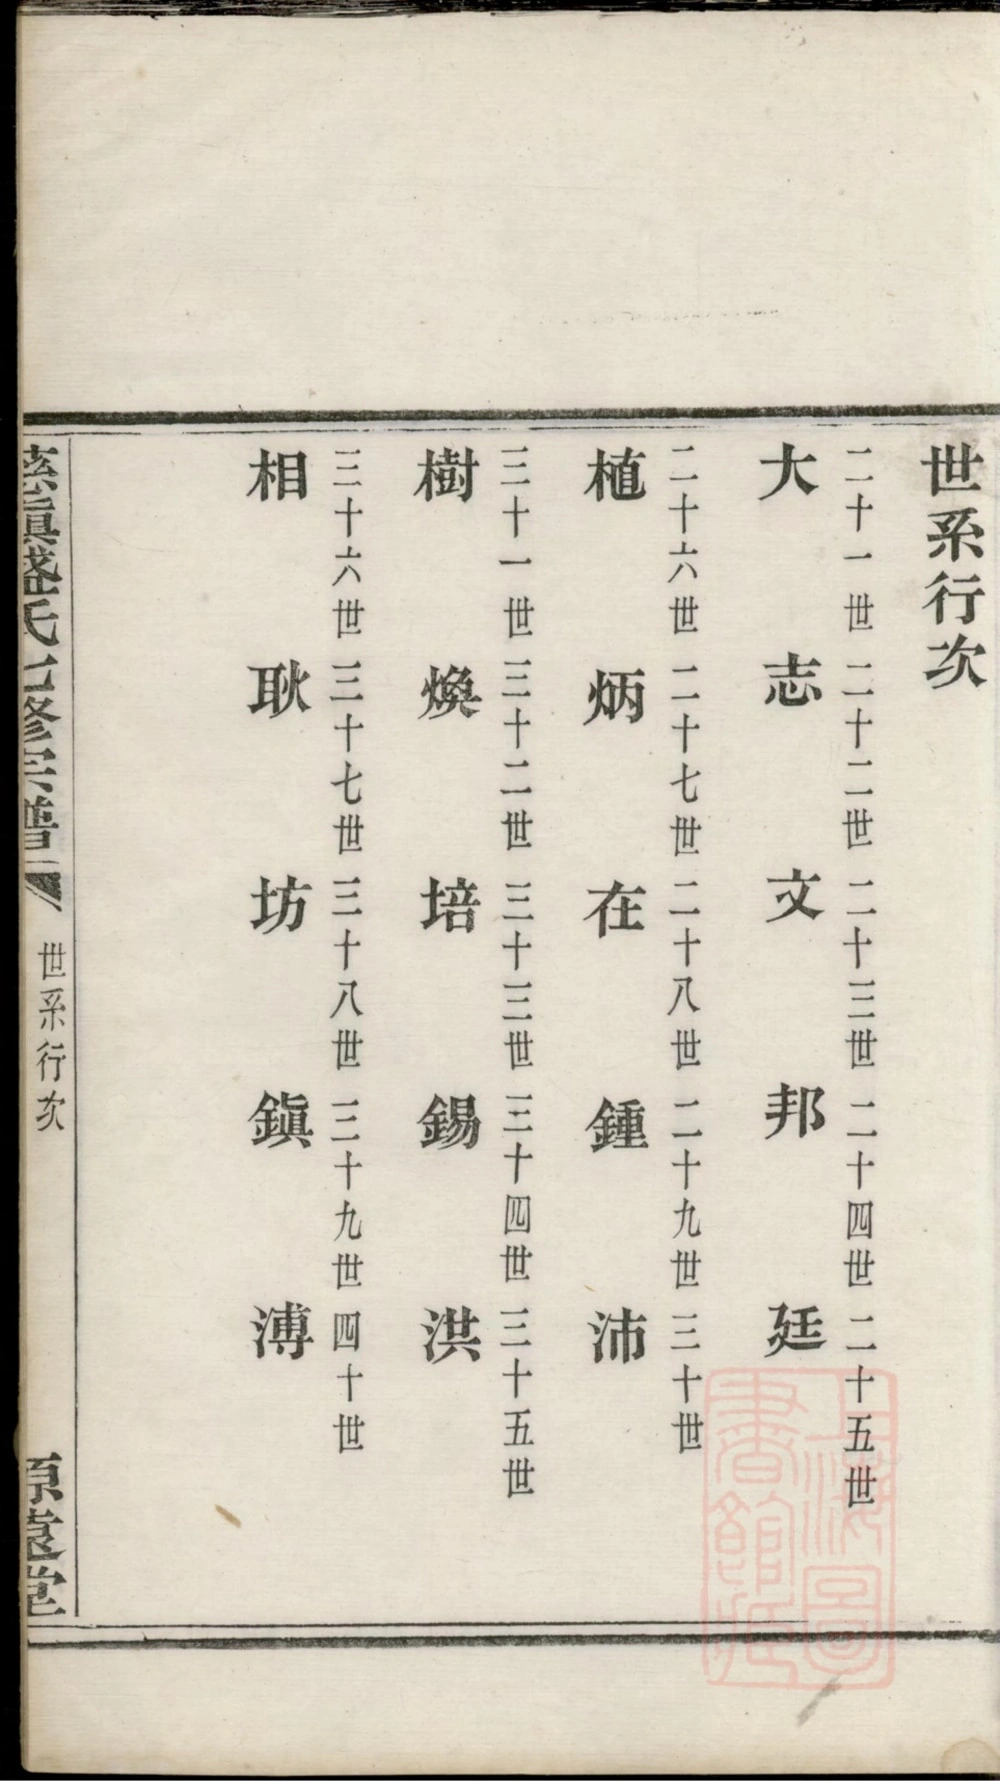 世系行次
二十一世 二十二世 二十三世 二十四世 二十五世
大 志 文 邦 廷
二十六世 二十七世 二十八世 二十九世 三十世
植 炳 在 鍾 沛
三十一世 三十二世 三十三世 三十四世 三十五世
樹 煥 培 錫 洪
三十六世 三十七世 三十八世 三十九世 四十世
相 耿 坊 鎭 溥
慈鎭盛氏七修宗譜 世系行次 原遠堂
上海圖書館藏